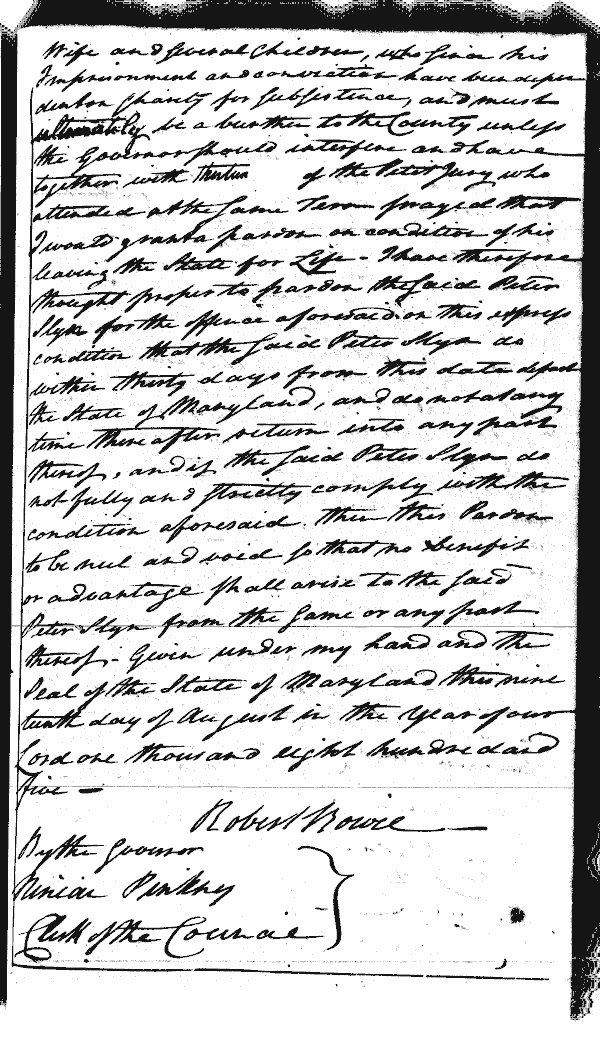 Wife and Several Children, who Since his
Imprisonment and conviction have been depen
dent on Charity for Subsistence, and must
ultimately be a burthen to the County unless
the Governor should interfere and have
together with thirteen of the Petit Jury who
attended at the Same Term prayed that
I would grant a pardon on condition of his
leaving the State for Life - I have therefore
thought proper to pardon the Said Peter
Slyn for the offence aforesaid on this express
condition that the Said Peter Slyn do
within thirty days from this date depart
the State of Maryland, and do not at any
time thereafter return into any part
thereof, and if the Said Peter Slyn do
not fully and strictly comply with the
condition aforesaid. then this Pardon
to be null and void so that no benefit
or advantage shall arise to the Said
Peter Slyn from the Same or any part
thereof - Given under my hand and the
Seal of the State of Maryland this nine
teenth day of August in the Year of our
Lord one thousand eight hundred and
five —
Robert Bowie —
By the Governor
Ninian Pinkney
Clerk of the Council